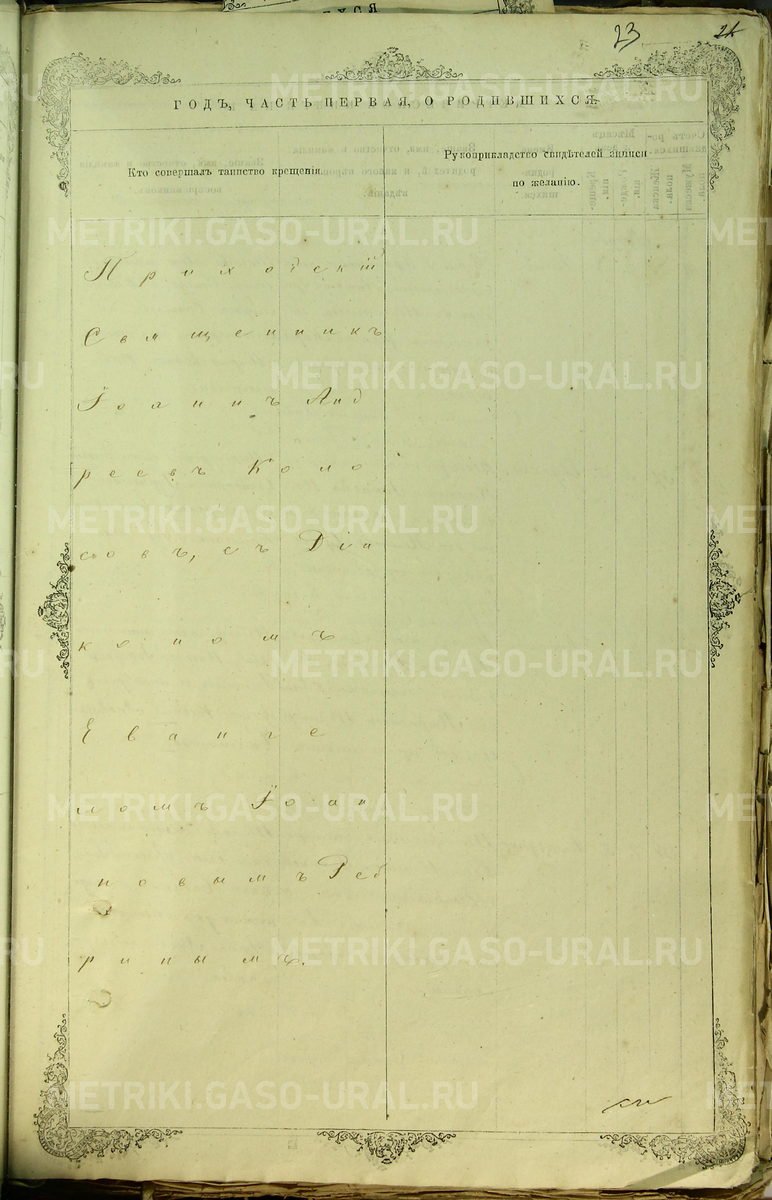 23
24
ГОДЪ, ЧАСТЬ ПЕРВАЯ, О РОДИВШИХСЯ
Кто совершалъ таинство крещенія.
Рукоприкладство свидѣтелей записи
по желанію.
Приходскій
Священникъ
Іоаннъ Анд
реевъ Коло
совъ, съ Діа
кономъ
Еванге
ломъ Іоан
новымъ Реб
ринымъ.
METRIKI.GASO-URAL.RU